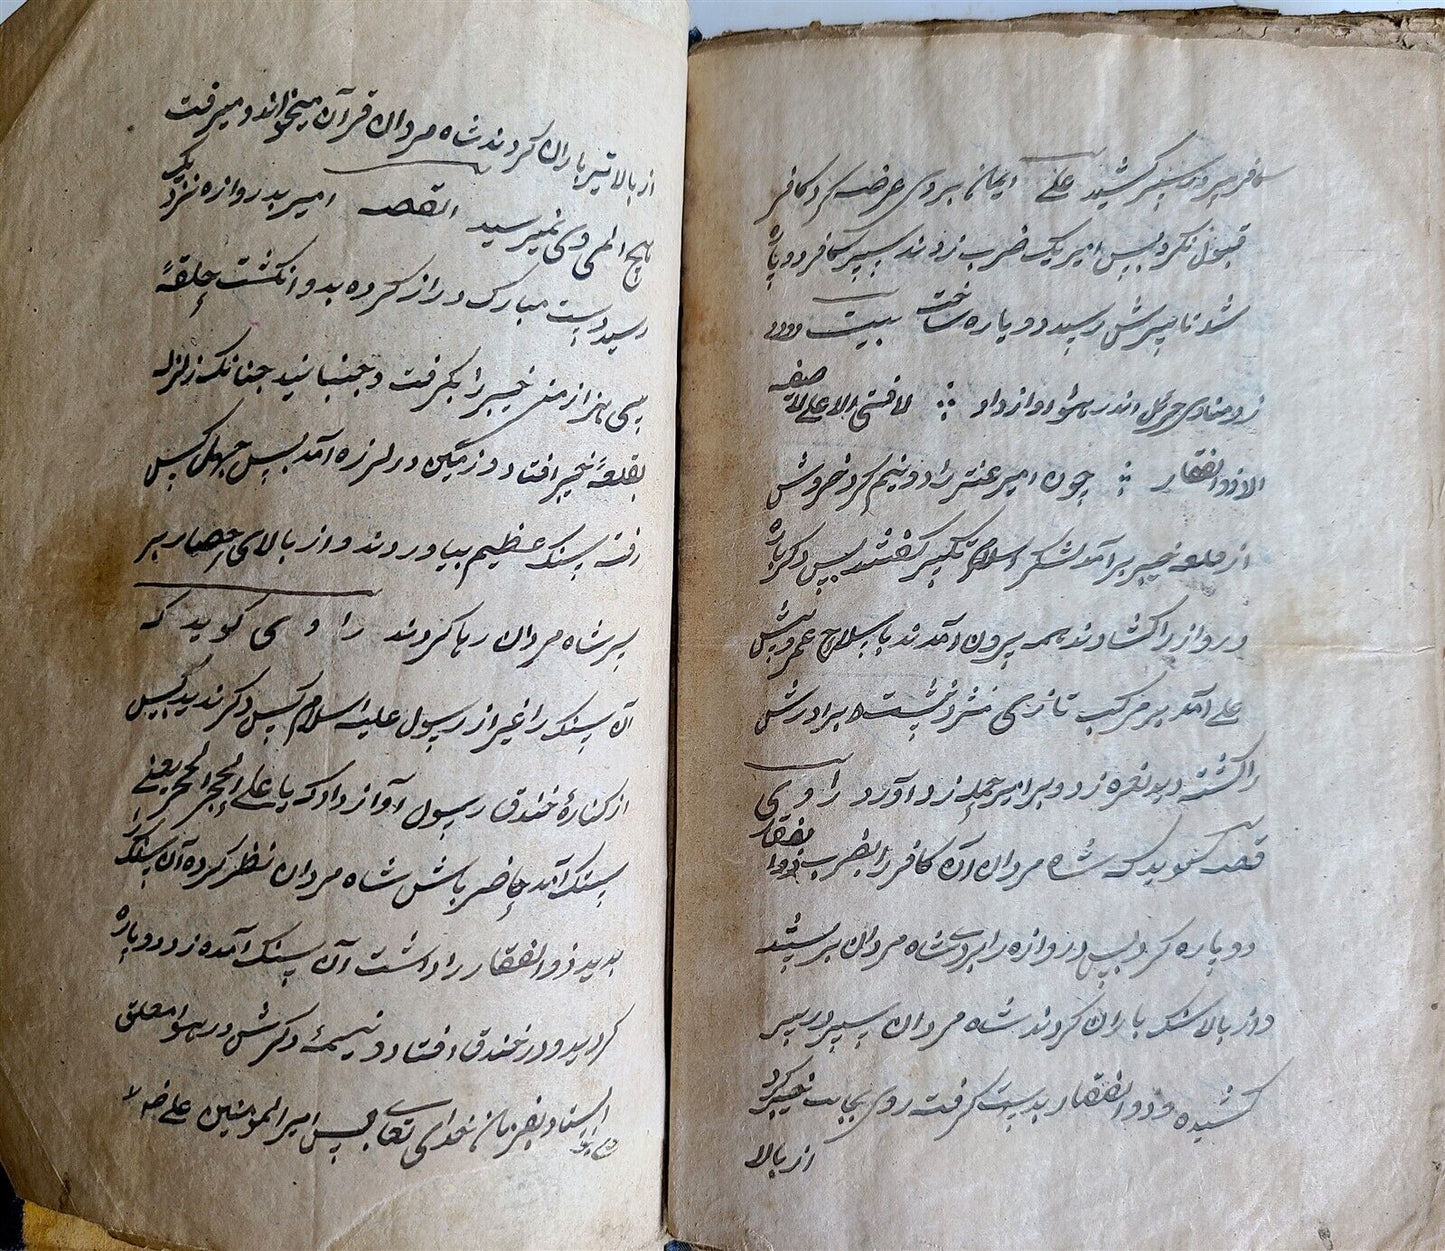 کافر سپر در سر کشید علی ایمان بر وی عرضه کرد کافر
قبول نکرد پس امیر یک ضرب زدند سپر کافر دو پاره
شد تا بسرش رسید دو پاره ساخت بیت
زد منادی جبرئیل اندر هوا آواز داد لا فتی الا علی لا سیف
الا ذو الفقار چون امیر عنتر را دو نیم کرد خروش
از قلعه خیبر بر آمد لشکر اسلام تکبیر گفتند پس دیگر باره
دروازه را کشادند همه بیرون آمدند با سلاح عمر و پیش
علی آمد بر مرکب تازی نشسته برادرش
را کشته دید نعره زد و بر امیر حمله زد آورد راوی
قصه گوید که شاه مردان آن کافر را بضرب ذوالفقار
دو پاره کرد پس دروازه را بر روی شاه مردان بر بستند
و از بالا سنک باران کردند شاه مردان سپر در سر
کشیده و ذو الفقار بدست گرفت روی بجانب خیبر کرد
از بالا
از بالا تیر باران کردند شاه مردان قرآن میخواند و میرفت
هیچ المی وی نمیرسید القصه امیر بدروازه نزدیک
رسید دست مبارک دراز کرده بدو انکشت حلقهٔ
سی هزار من خیبر را بگرفت و بجنبانید چنانکه زلزله
بقلعهٔ خیبر افتاد و زمین در لرزه آمد پس چهل کس
رفته سنک عظیم بیاوردند و از بالای حصار بر
سر شاه مردان رها کردند راوی گوید که
آن سنک را غیر از رسول علیه السلام کس دیگر ندید پس
از کنارهٔ خندق رسول آواز داد که یا علی الحجر الحجر یعنی
سنک آمد حاضر باش شاه مردان نظر کرده آن سنک را
بدید ذو الفقار را داشت آن سنک آمده زد دو پاره
گردید و در خندق افتاد و نیمهٔ دیگرش در هوا معلق
استاد بفرمان خدای تعالی پس امیر المومنین علی رضه